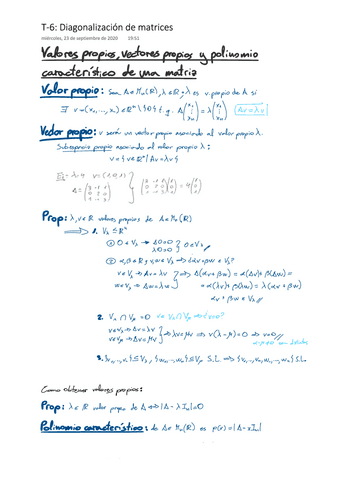 T-6: Diagonalización de matrices
miércoles, 23 de septiembre de 2020 19:51
Valores propios, vectores propios y polinomio
característico de una matriz
Valor propio: Sea A ∈ Mₙ(ℝ), λ ∈ ℝ, λ es v. propio de A si
∃ v = (x₁, ..., xₙ) ∈ ℝⁿ \ {0} t.q. A (x₁ ⋮ xₙ) = λ (x₁ ⋮ xₙ) Av = λv
Vector propio: v será un vector propio asociado al valor propio λ.
Subespacio propio asociado al valor propio λ:
v = { v ∈ ℝⁿ | Av = λv }
λ = 4
Prop: λ, ν ∈ ℝ valores propios de A ∈ Mₙ(ℝ)
⟹ 1. V_λ ≤ ℝⁿ
① 0 ∈ V_λ → A0 = 0
λ0 = 0 } 0 ∈ V_λ ✓
② α, β ∈ ℝ y v, w ∈ V_λ ⟹ ¿αv + βw ∈ V_λ?
v ∈ V_λ → Av = λv
w ∈ V_λ → Aw = λw } ⟹ A(αv + βw) = α(Av) + β(Aw) =
= α(λv) + β(λw) = λ(αv + βw)
αv + βw ∈ V_λ //
2. V_λ ∩ V_μ = 0 v ∈ V_λ ∩ V_μ ⟹ ¿v = 0?
v ∈ V_λ → Av = λv
v ∈ V_μ → Av = μv } ⟹ λv = μv ⟹ v(λ - μ) = 0 ⟹ v = 0 //
3. S.L. ⟹ S.L.
Como obtener valores propios:
Prop: λ ∈ ℝ valor propio de A ⟺ |A - λIₙ| = 0
Polinomio característico: de A ∈ Mₙ(ℝ) es p(x) = |A - xIₙ|